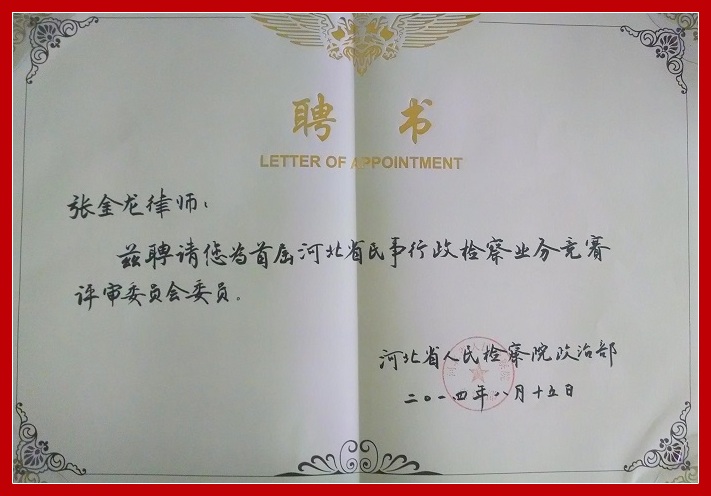 聘书
LETTER OF APPOINTMENT
张金龙律师：
兹聘请您为首届河北省民事行政检察业务竞赛
评审委员会委员。
河北省人民检察院政治部
二〇一四年八月十五日